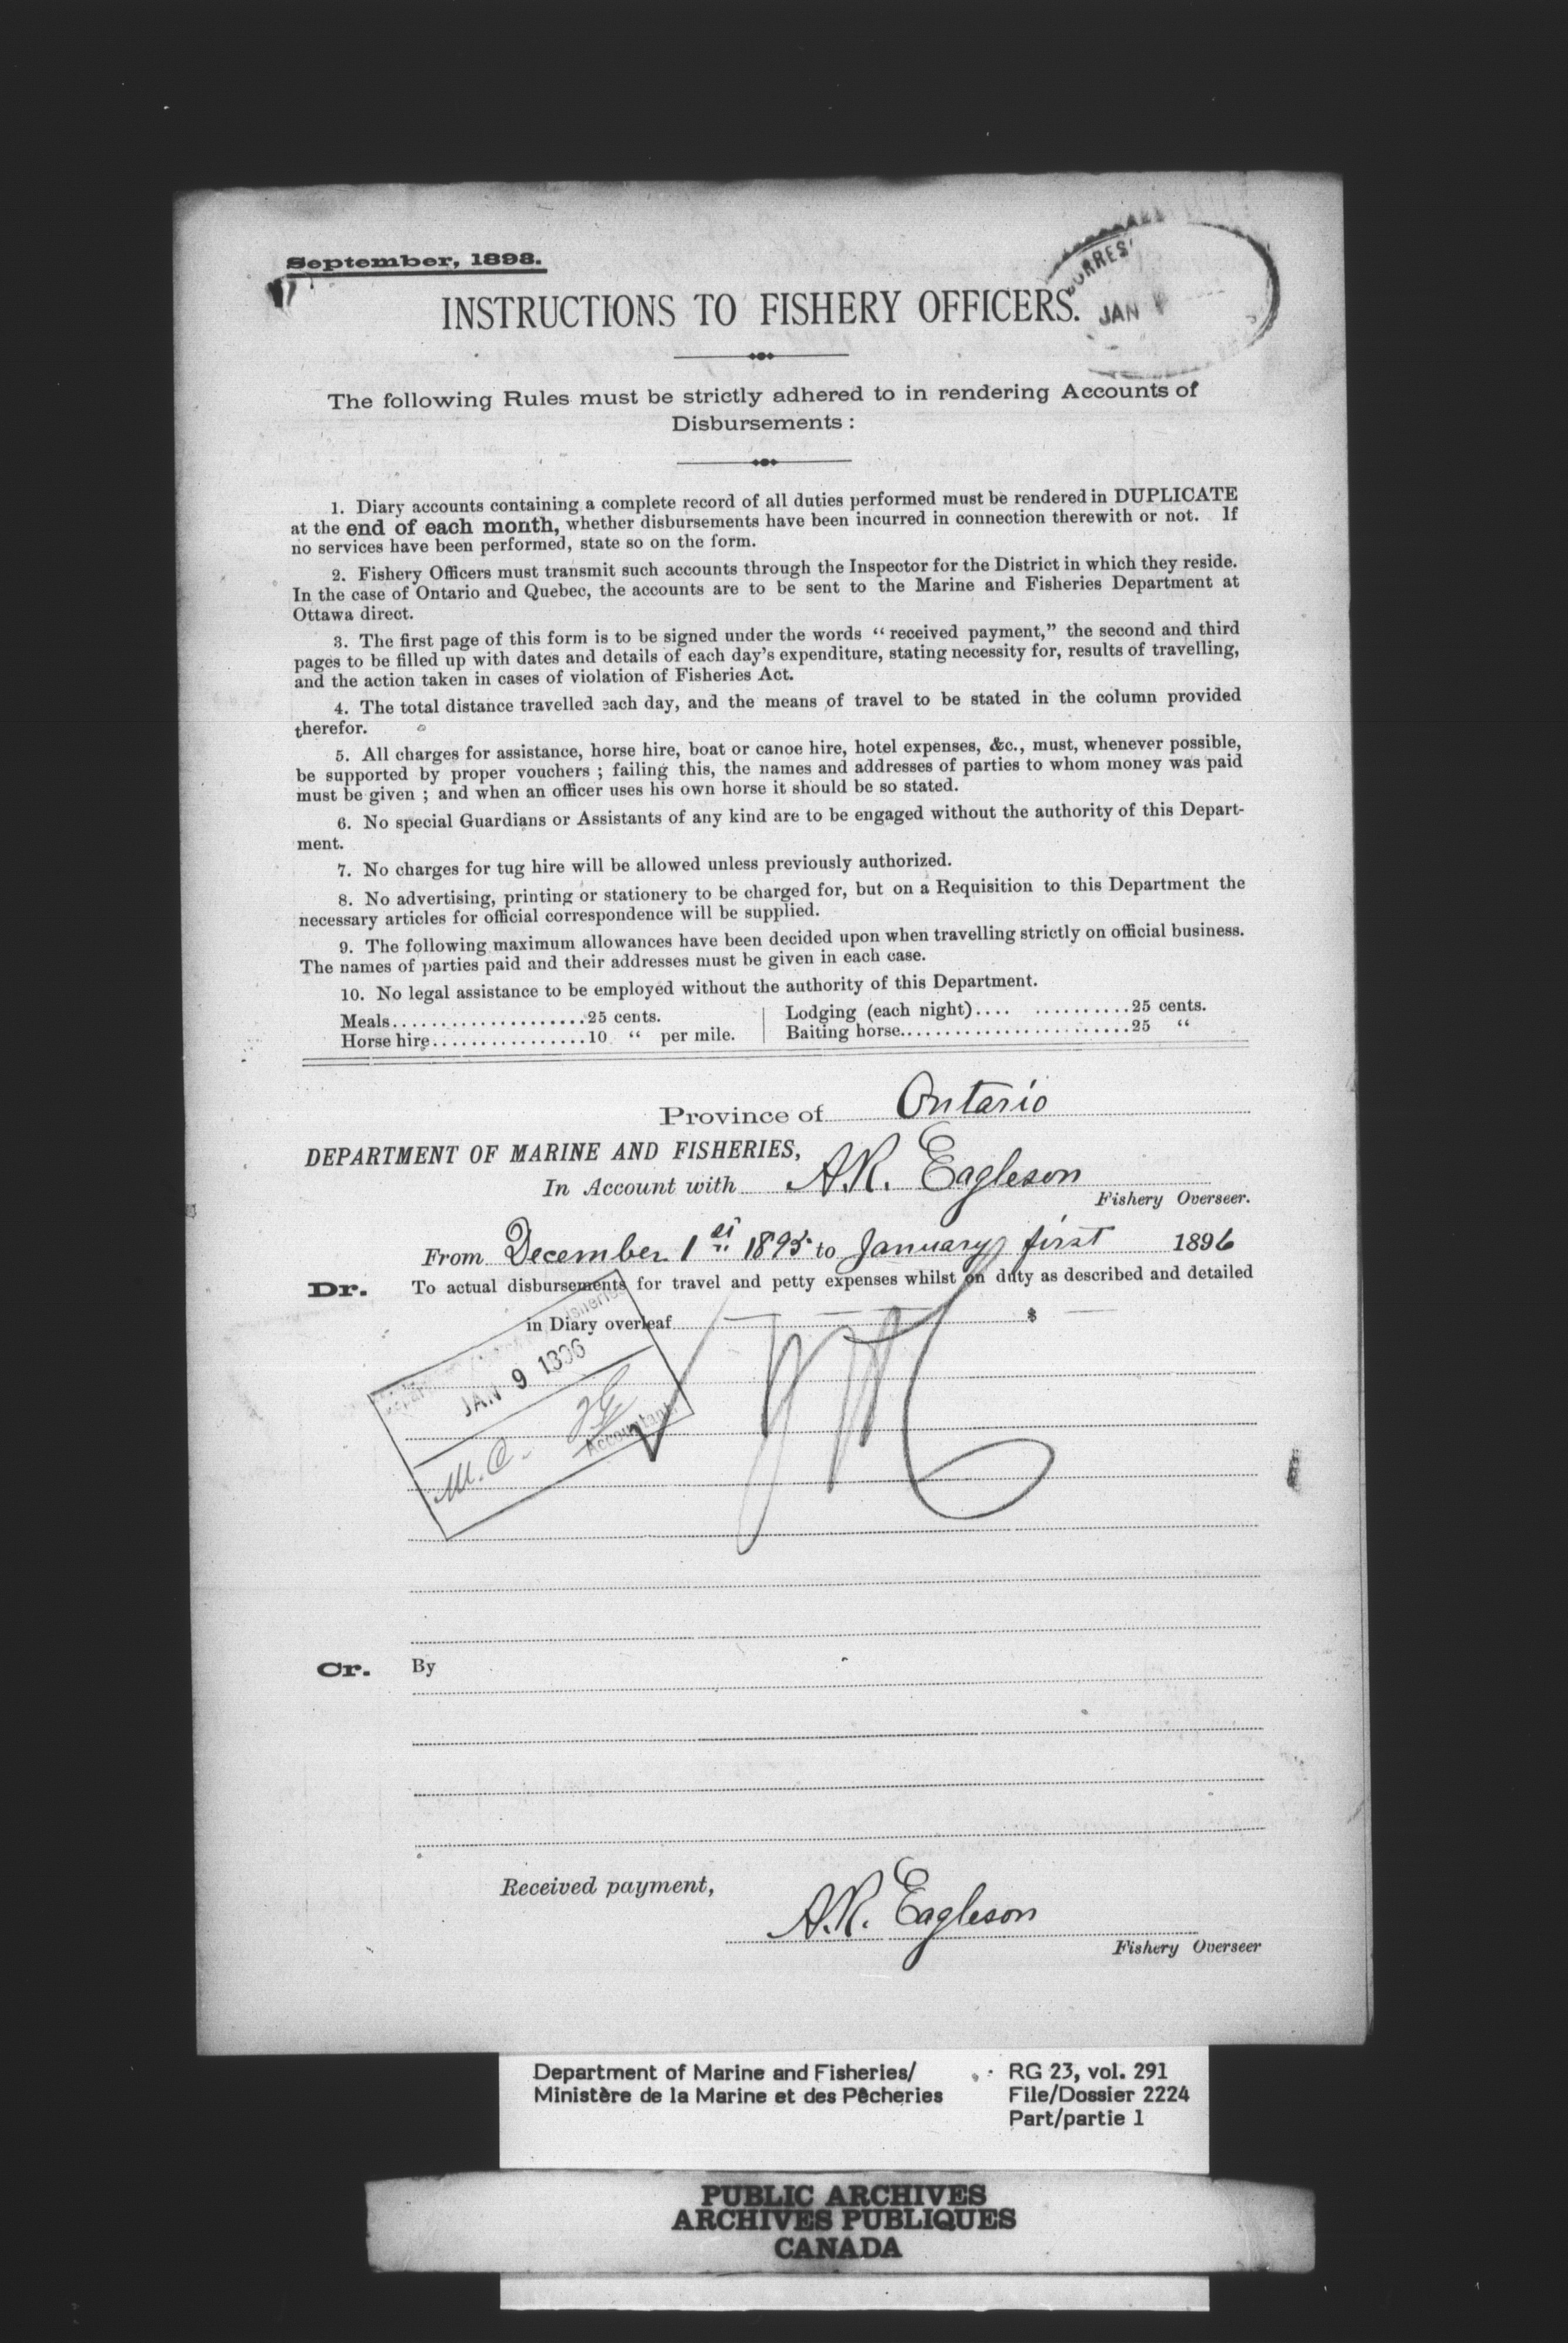 September, 1893.
CORRES
JAN
INSTRUCTIONS TO FISHERY OFFICERS.
The following Rules must be strictly adhered to in rendering Accounts of
Disbursements :
1. Diary accounts containing a complete record of all duties performed must be rendered in DUPLICATE
at the end of each month, whether disbursements have been incurred in connection therewith or not. If
no services have been performed, state so on the form.
2. Fishery Officers must transmit such accounts through the Inspector for the District in which they reside.
In the case of Ontario and Quebec, the accounts are to be sent to the Marine and Fisheries Department at
Ottawa direct.
3. The first page of this form is to be signed under the words “received payment,” the second and third
pages to be filled up with dates and details of each day's expenditure, stating necessity for, results of travelling,
and the action taken in cases of violation of Fisheries Act.
4. The total distance travelled each day, and the means of travel to be stated in the column provided
therefor.
5. All charges for assistance, horse hire, boat or canoe hire, hotel expenses, &c., must, whenever possible,
be supported by proper vouchers ; failing this, the names and addresses of parties to whom money was paid
must be given ; and when an officer uses his own horse it should be so stated.
6. No special Guardians or Assistants of any kind are to be engaged without the authority of this Depart-
ment.
7. No charges for tug hire will be allowed unless previously authorized.
8. No advertising, printing or stationery to be charged for, but on a Requisition to this Department the
necessary articles for official correspondence will be supplied.
9. The following maximum allowances have been decided upon when travelling strictly on official business.
The names of parties paid and their addresses must be given in each case.
10. No legal assistance to be employed without the authority of this Department.
Meals....................25 cents. Lodging (each night).... ..........25 cents.
Horse hire................10 “ per mile. Baiting horse........................25 “
Province of Ontario
DEPARTMENT OF MARINE AND FISHERIES,
In Account with A.R. Eagleson
Fishery Overseer.
From December 1st 1895 to January first 1896
Dr. To actual disbursements for travel and petty expenses whilst on duty as described and detailed
in Diary overleaf $
JAN 9 1896
M.C.
Accountant
Cr. By
Received payment,
A.R. Eagleson
Fishery Overseer
Department of Marine and Fisheries/
Ministère de la Marine et des Pêcheries
RG 23, vol. 291
File/Dossier 2224
Part/partie 1
PUBLIC ARCHIVES
ARCHIVES PUBLIQUES
CANADA